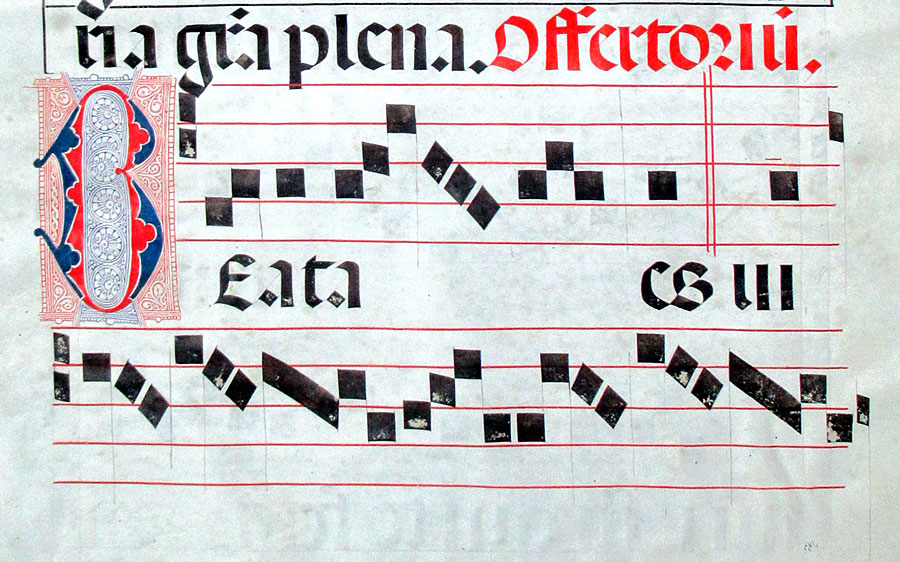 ria gr̃a plena. Offertoriũ.
BEata es ui